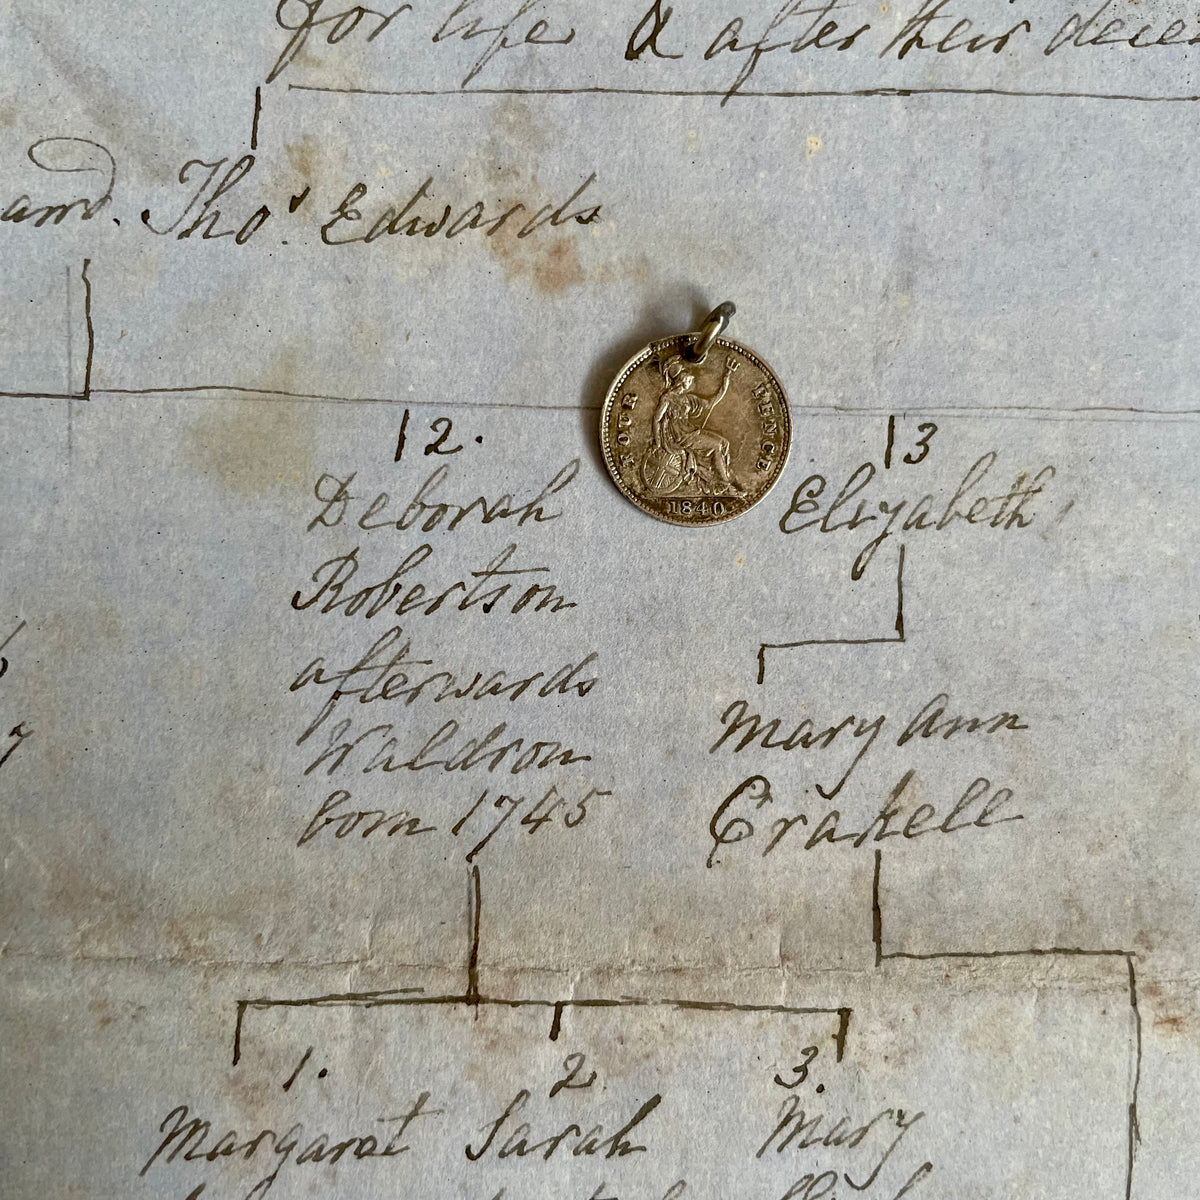 for life & after their
and. Thos. Edwards
FOUR PENCE
1840
12.
Deborah
Robertson
afterwards
Waldron
born 1745
13
Elizabeth
Mary Ann
Crakell
1. 2 3.
Margaret Sarah Mary